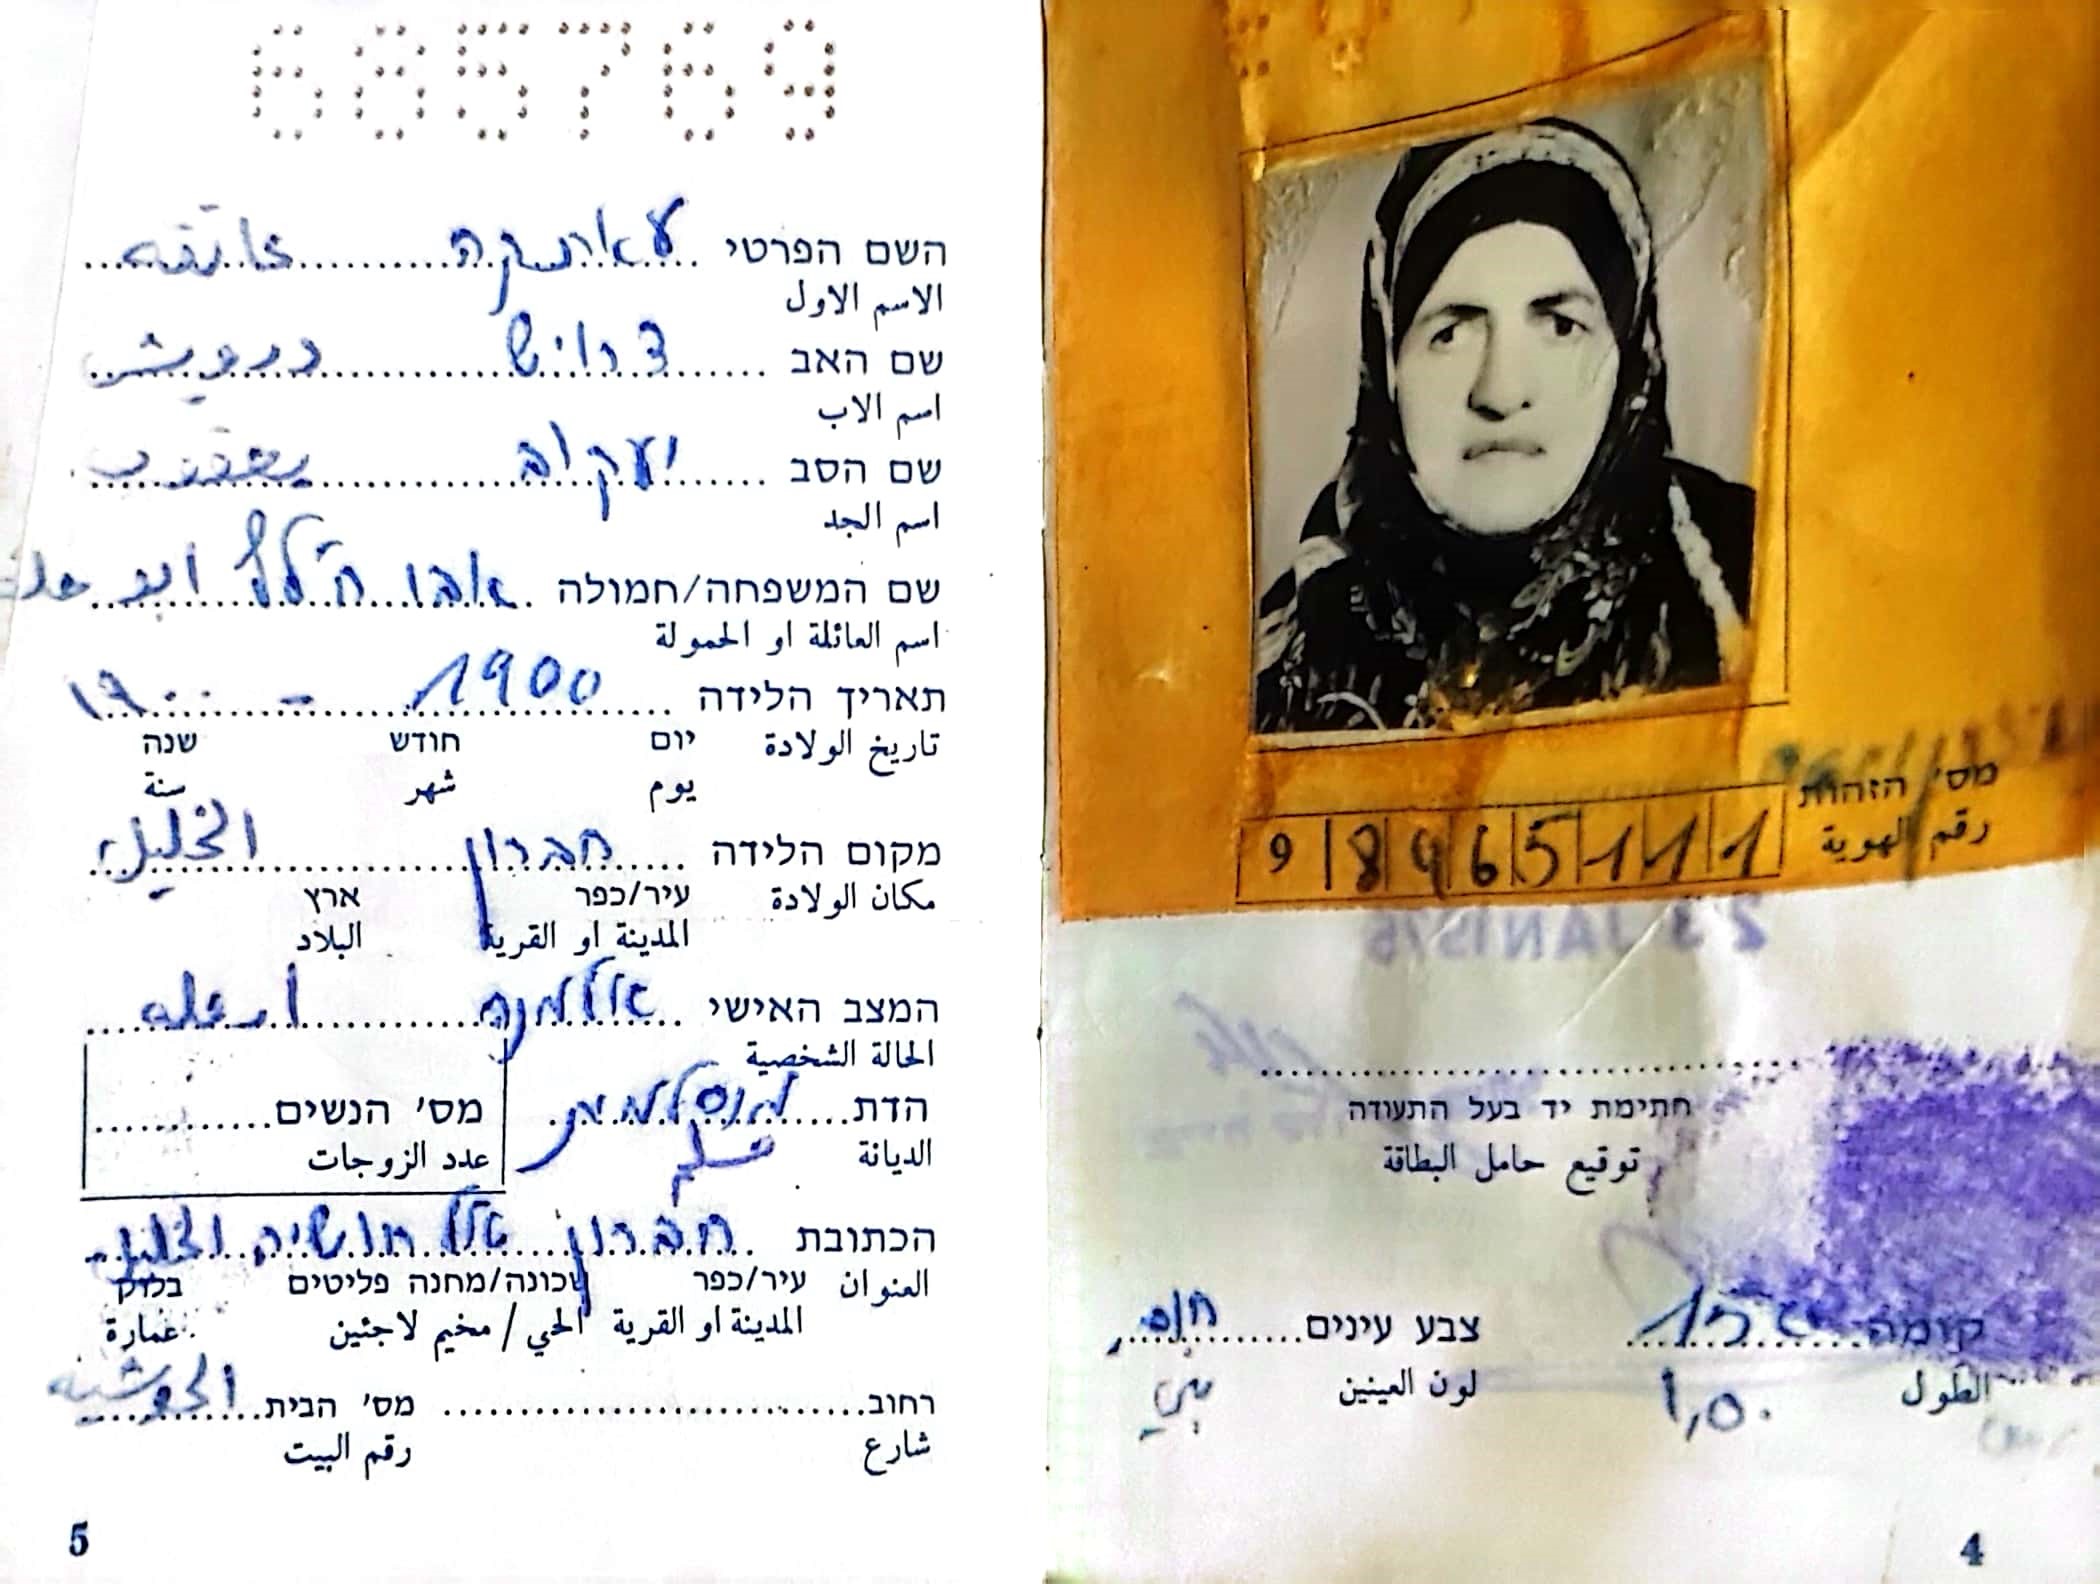 685769
השם הפרטי עאתקה عاتقه
الاسم الاول
שם האב דרויש درويش
اسم الاب
שם הסב יעקוב يعقوب
اسم الجد
שם המשפחה/חמולה אבו ח'לף ابو
اسم العائلة او الحمولة
תאריך הלידה 1900 - ١٩٠٠
تاريخ الولادة
יום חודש שנה
يوم شهر سنة
מקום הלידה חברון الخليل
مكان الولادة
עיר/כפר ארץ
المدينة او القرية البلاد
המצב האישי אלמנה ارمله
الحالة الشخصية
הדת מוסלמית
الديانة مسلم
מס' הנשים
عدد الزوجات
הכתובת חברון الخليل
العنوان
עיר/כפר שכונה/מחנה פליטים בלוק
المدينة او القرية الحي / مخيم لاجئين عمارة
רחוב מס' הבית
شارع رقم البيت
5
מס' הזהות
رقم الهوية
9 8 9 6 5 1 1 1
חתימת יד בעל התעודה
توقيع حامل البطاقة
קומה צבע עינים חום
الطول ١,٥٠ لون العينين بني
4